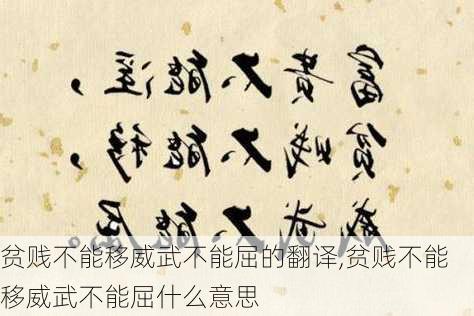 富貴不能淫，
貧賤不能移，
威武不能屈。
贫贱不能移威武不能屈的翻译,贫贱不能
移威武不能屈什么意思